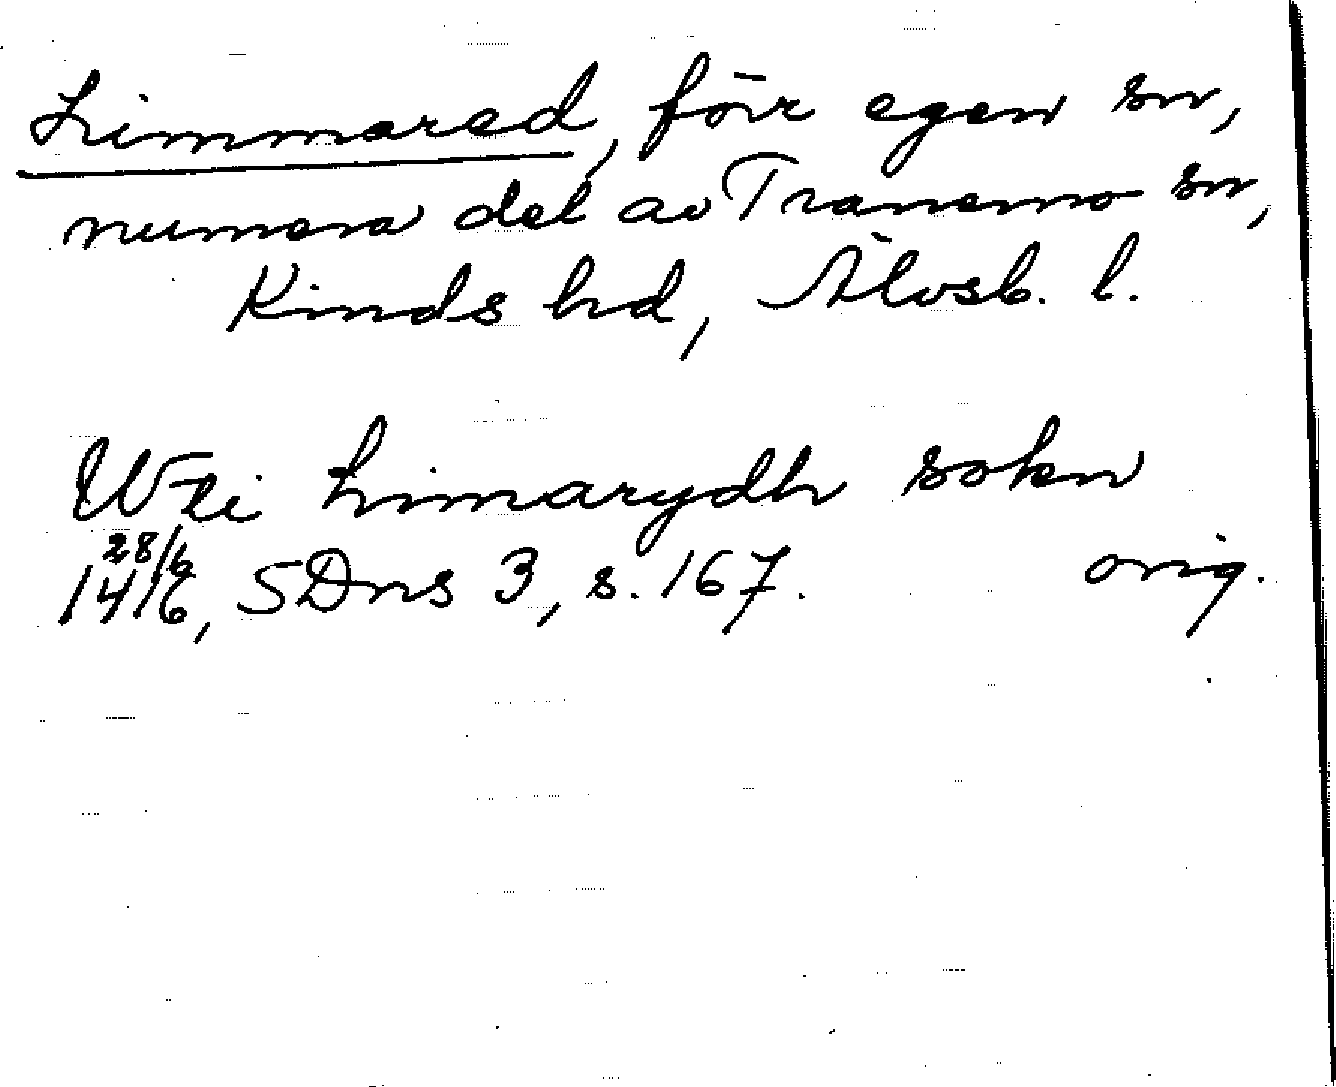 Limmared, förr egen sn,
numera del av Tranemo sn,
Kinds hd, Älvsb. l.
Wti Limarydh sokn
28/6
1416, SDns 3, s. 167. orig.